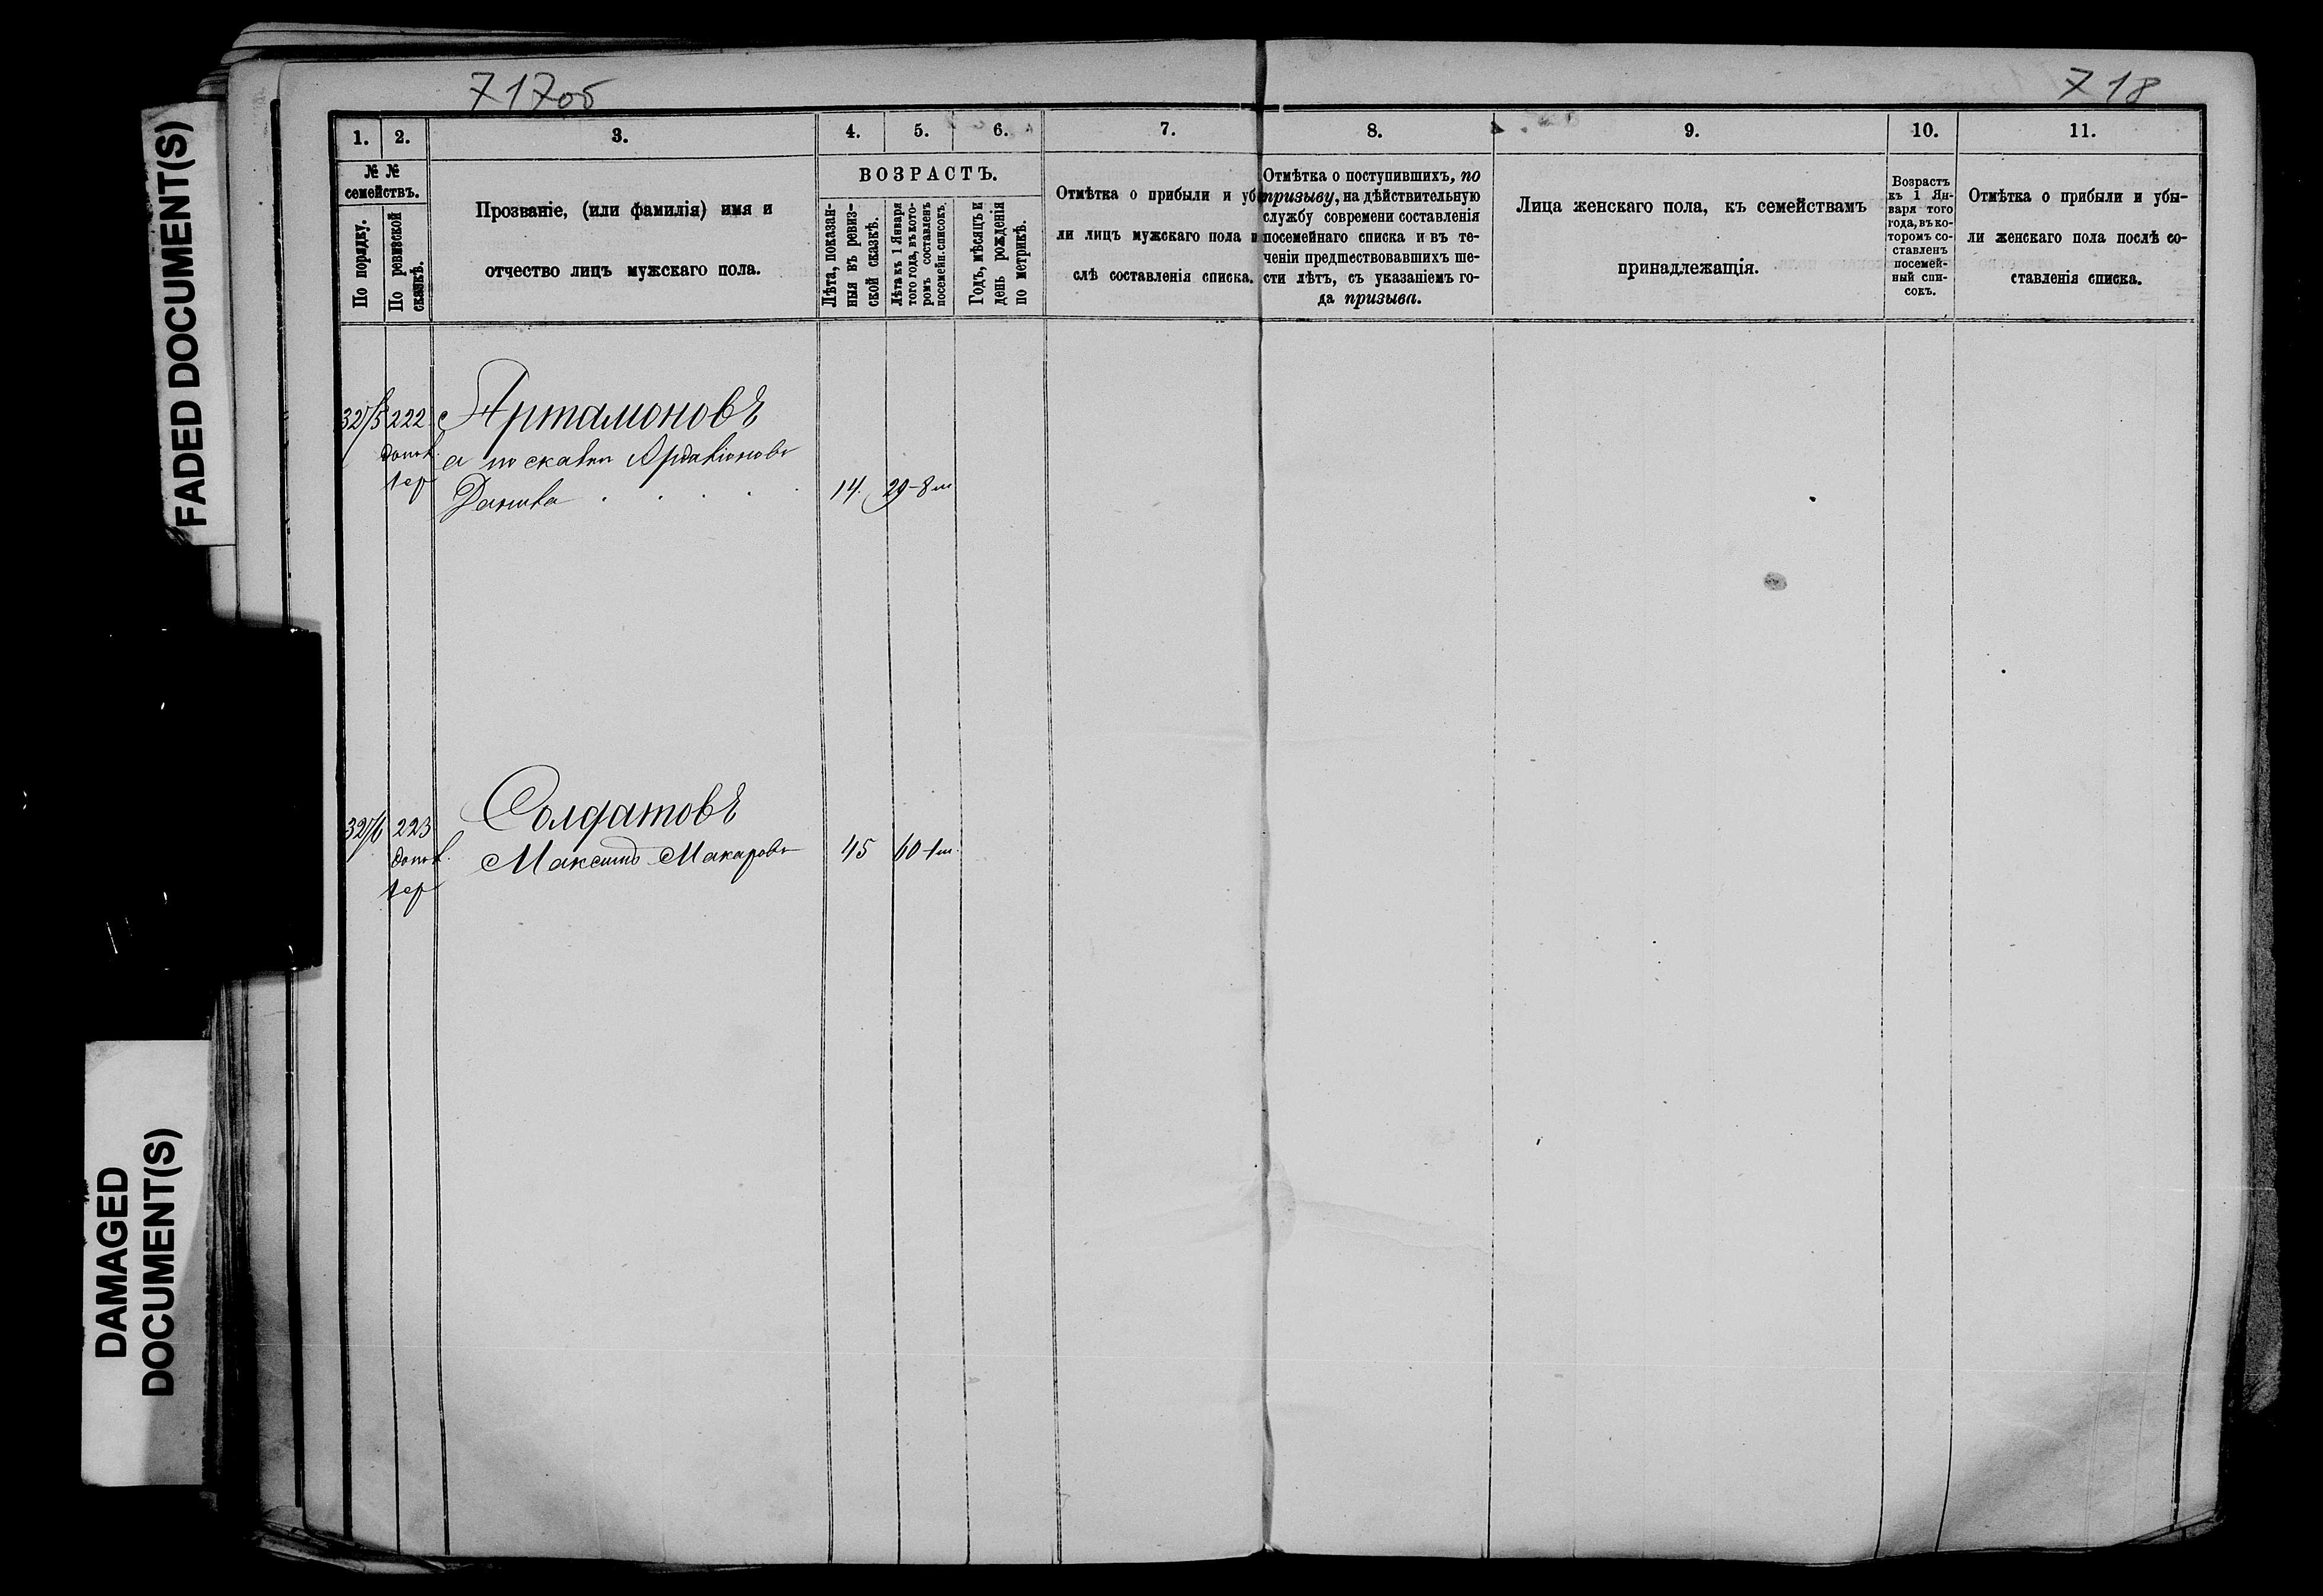 717об
718
FADED DOCUMENT(S)
DAMAGED
DOCUMENT(S)
1.
2.
3.
4.
5.
6.
7.
8.
9.
10.
11.
№ №
семействъ.
По порядку.
По ревизской
сказкѣ.
Прозваніе, (или фамилія) имя и
отчество лицъ мужскаго пола.
ВОЗРАСТЪ.
Лѣта, показан-
ныя въ ревиз-
ской сказкѣ.
Лѣта къ 1 Января
того года, въ кото-
ромъ составленъ
посемейн. списокъ.
Годъ, мѣсяцъ и
день рожденія
по метрикѣ.
Отмѣтка о прибыли и уб
ли лицъ мужскаго пола
слѣ составленія списка.
Отмѣтка о поступившихъ, по
призыву, на дѣйствительную
службу современи составленія
посемейнаго списка и въ те-
ченіи предшествовавшихъ ше-
сти лѣтъ, съ указаніемъ го-
да призыва.
Лица женскаго пола, къ семействамъ
принадлежащія.
Возрастъ
къ 1 Ян-
варя того
года, въ ко-
торомъ со-
ставленъ
посемей-
ный спи-
сокъ.
Отмѣтка о прибыли и убы-
ли женскаго пола послѣ со-
ставленія списка.
222 Артамоновъ
а по
14. 29-8м
223 Солдатовъ
Максимъ Макаровъ 45 60-1м.